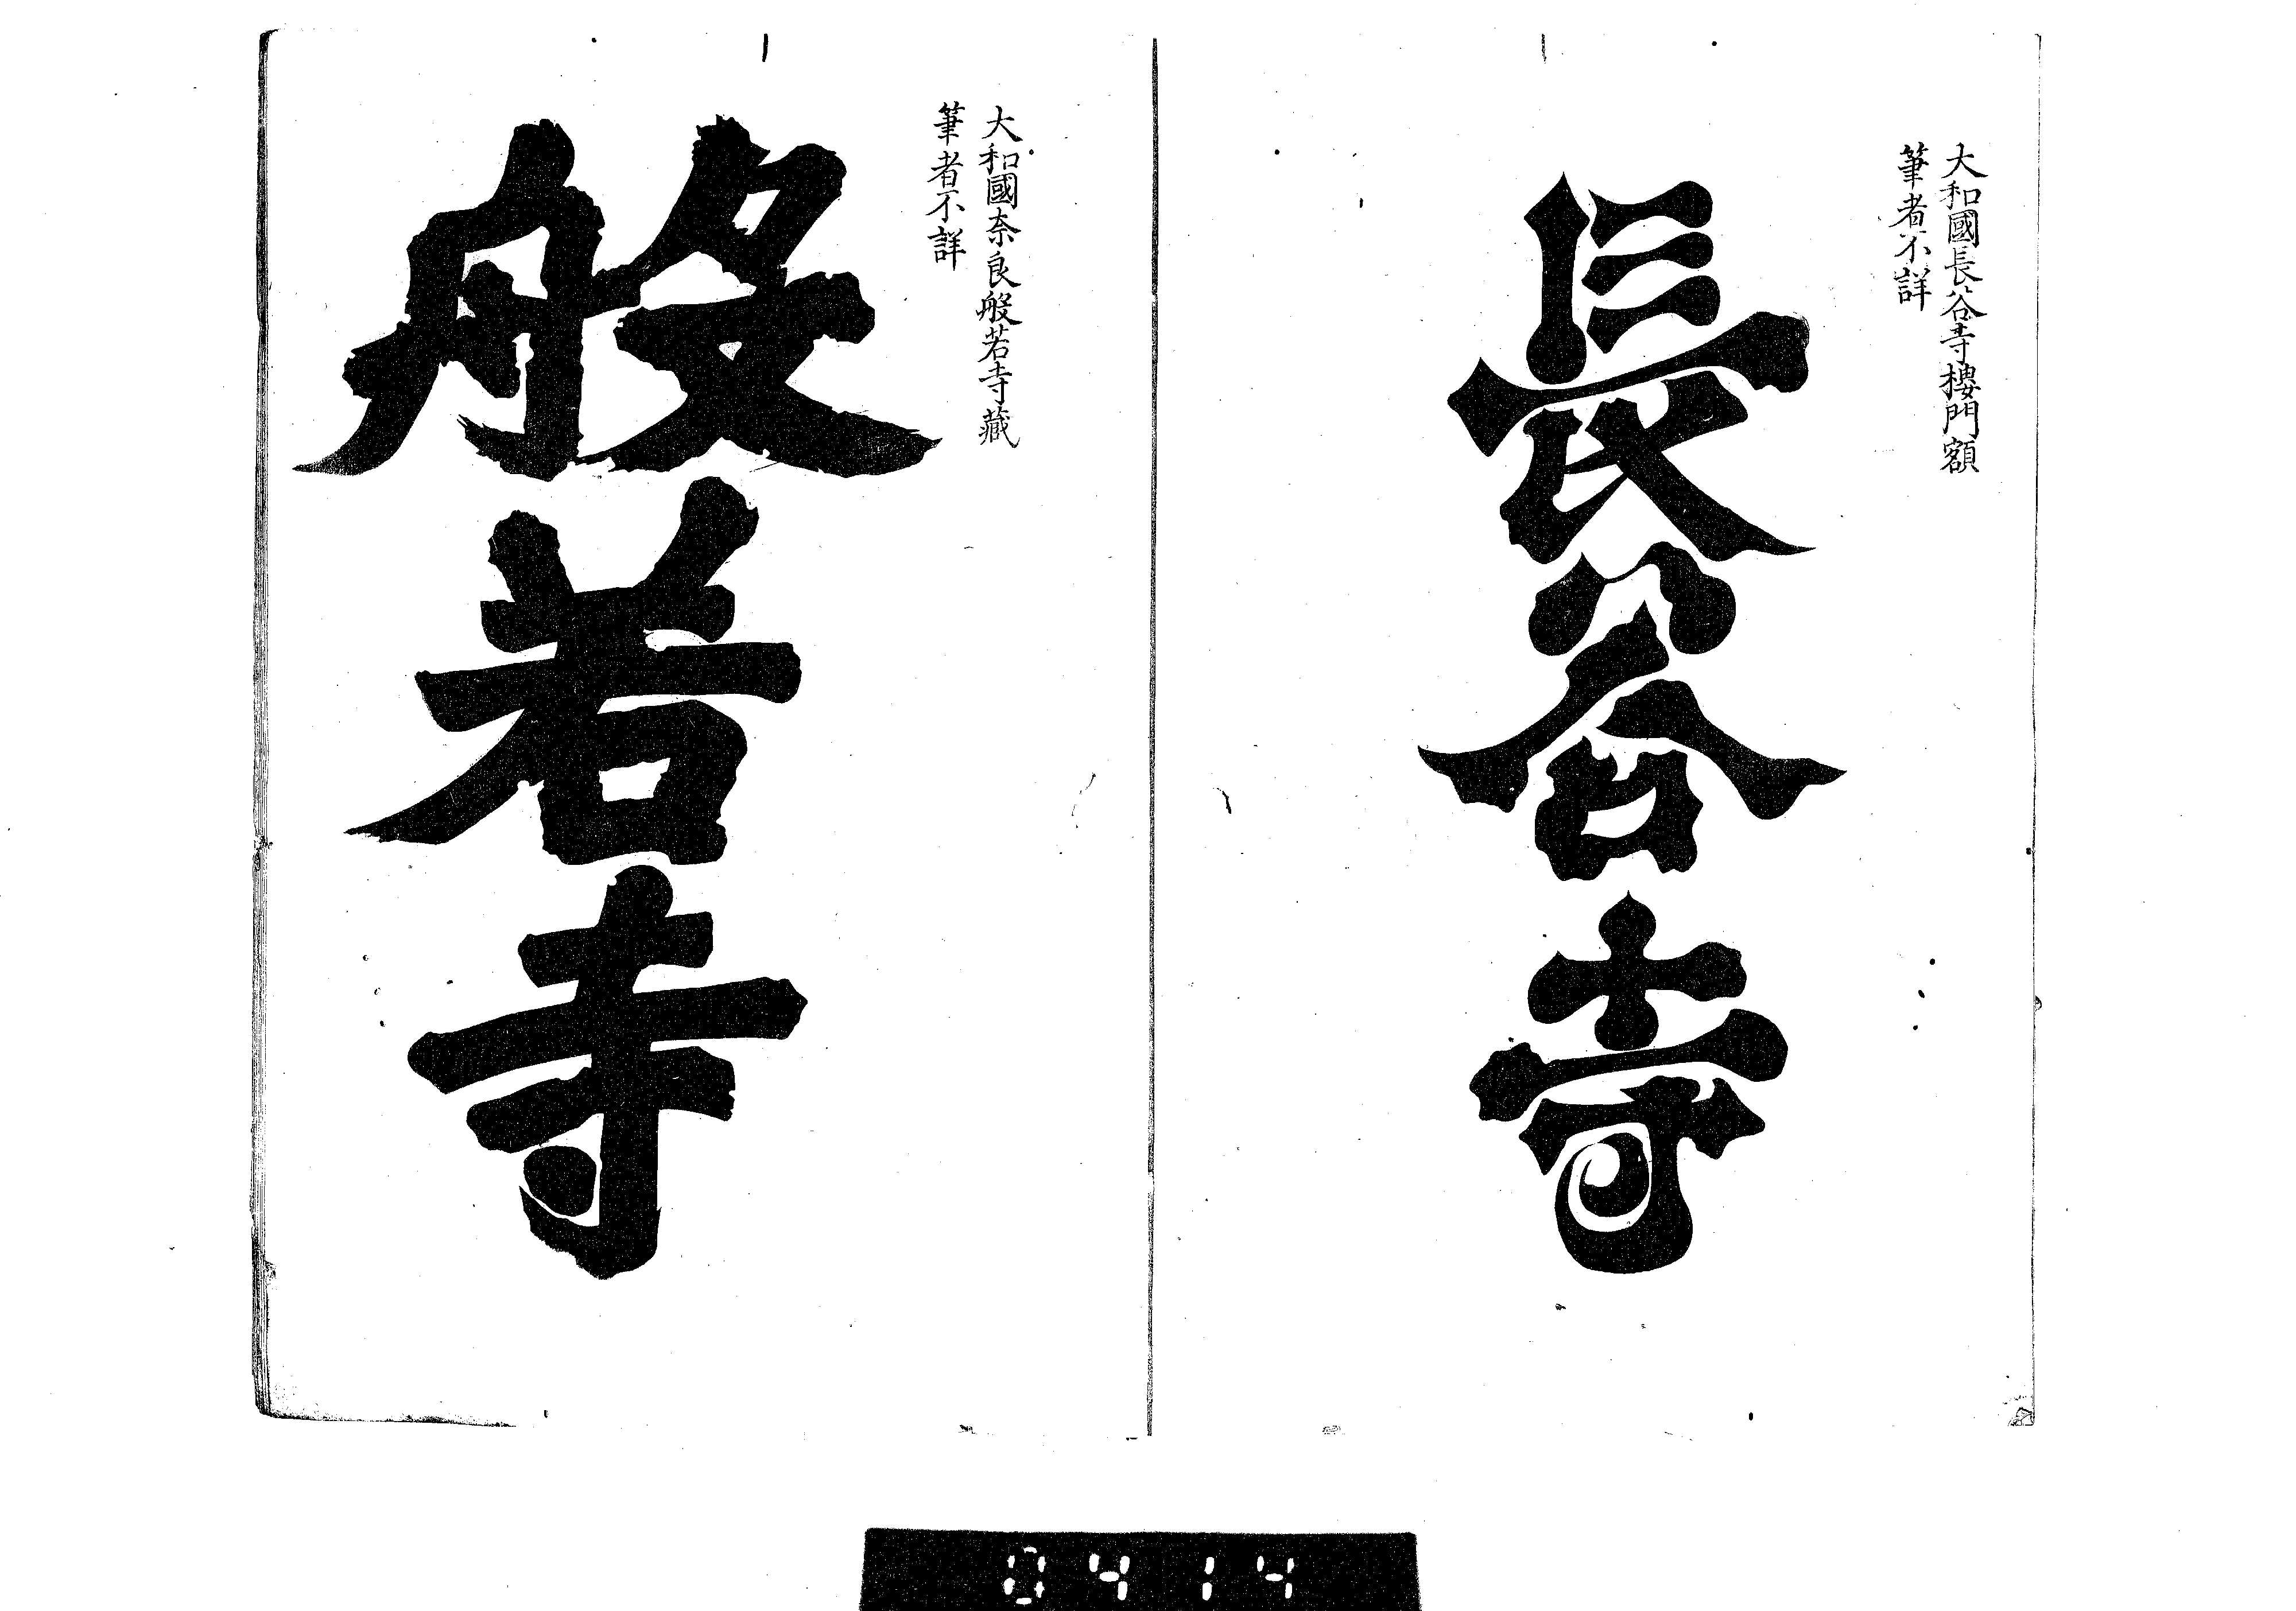 大和國長谷寺樓門額
筆者不詳
長谷寺
大和國奈良般若寺藏
筆者不詳
般若寺
0414